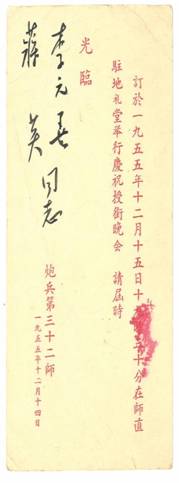 訂於一九五五年十二月十五日十 十分在師直
駐地礼堂举行慶祝授銜晚会 請屆時
光臨
李元 同志
蔣英
炮兵第三十二師
一九五五年十二月十四日